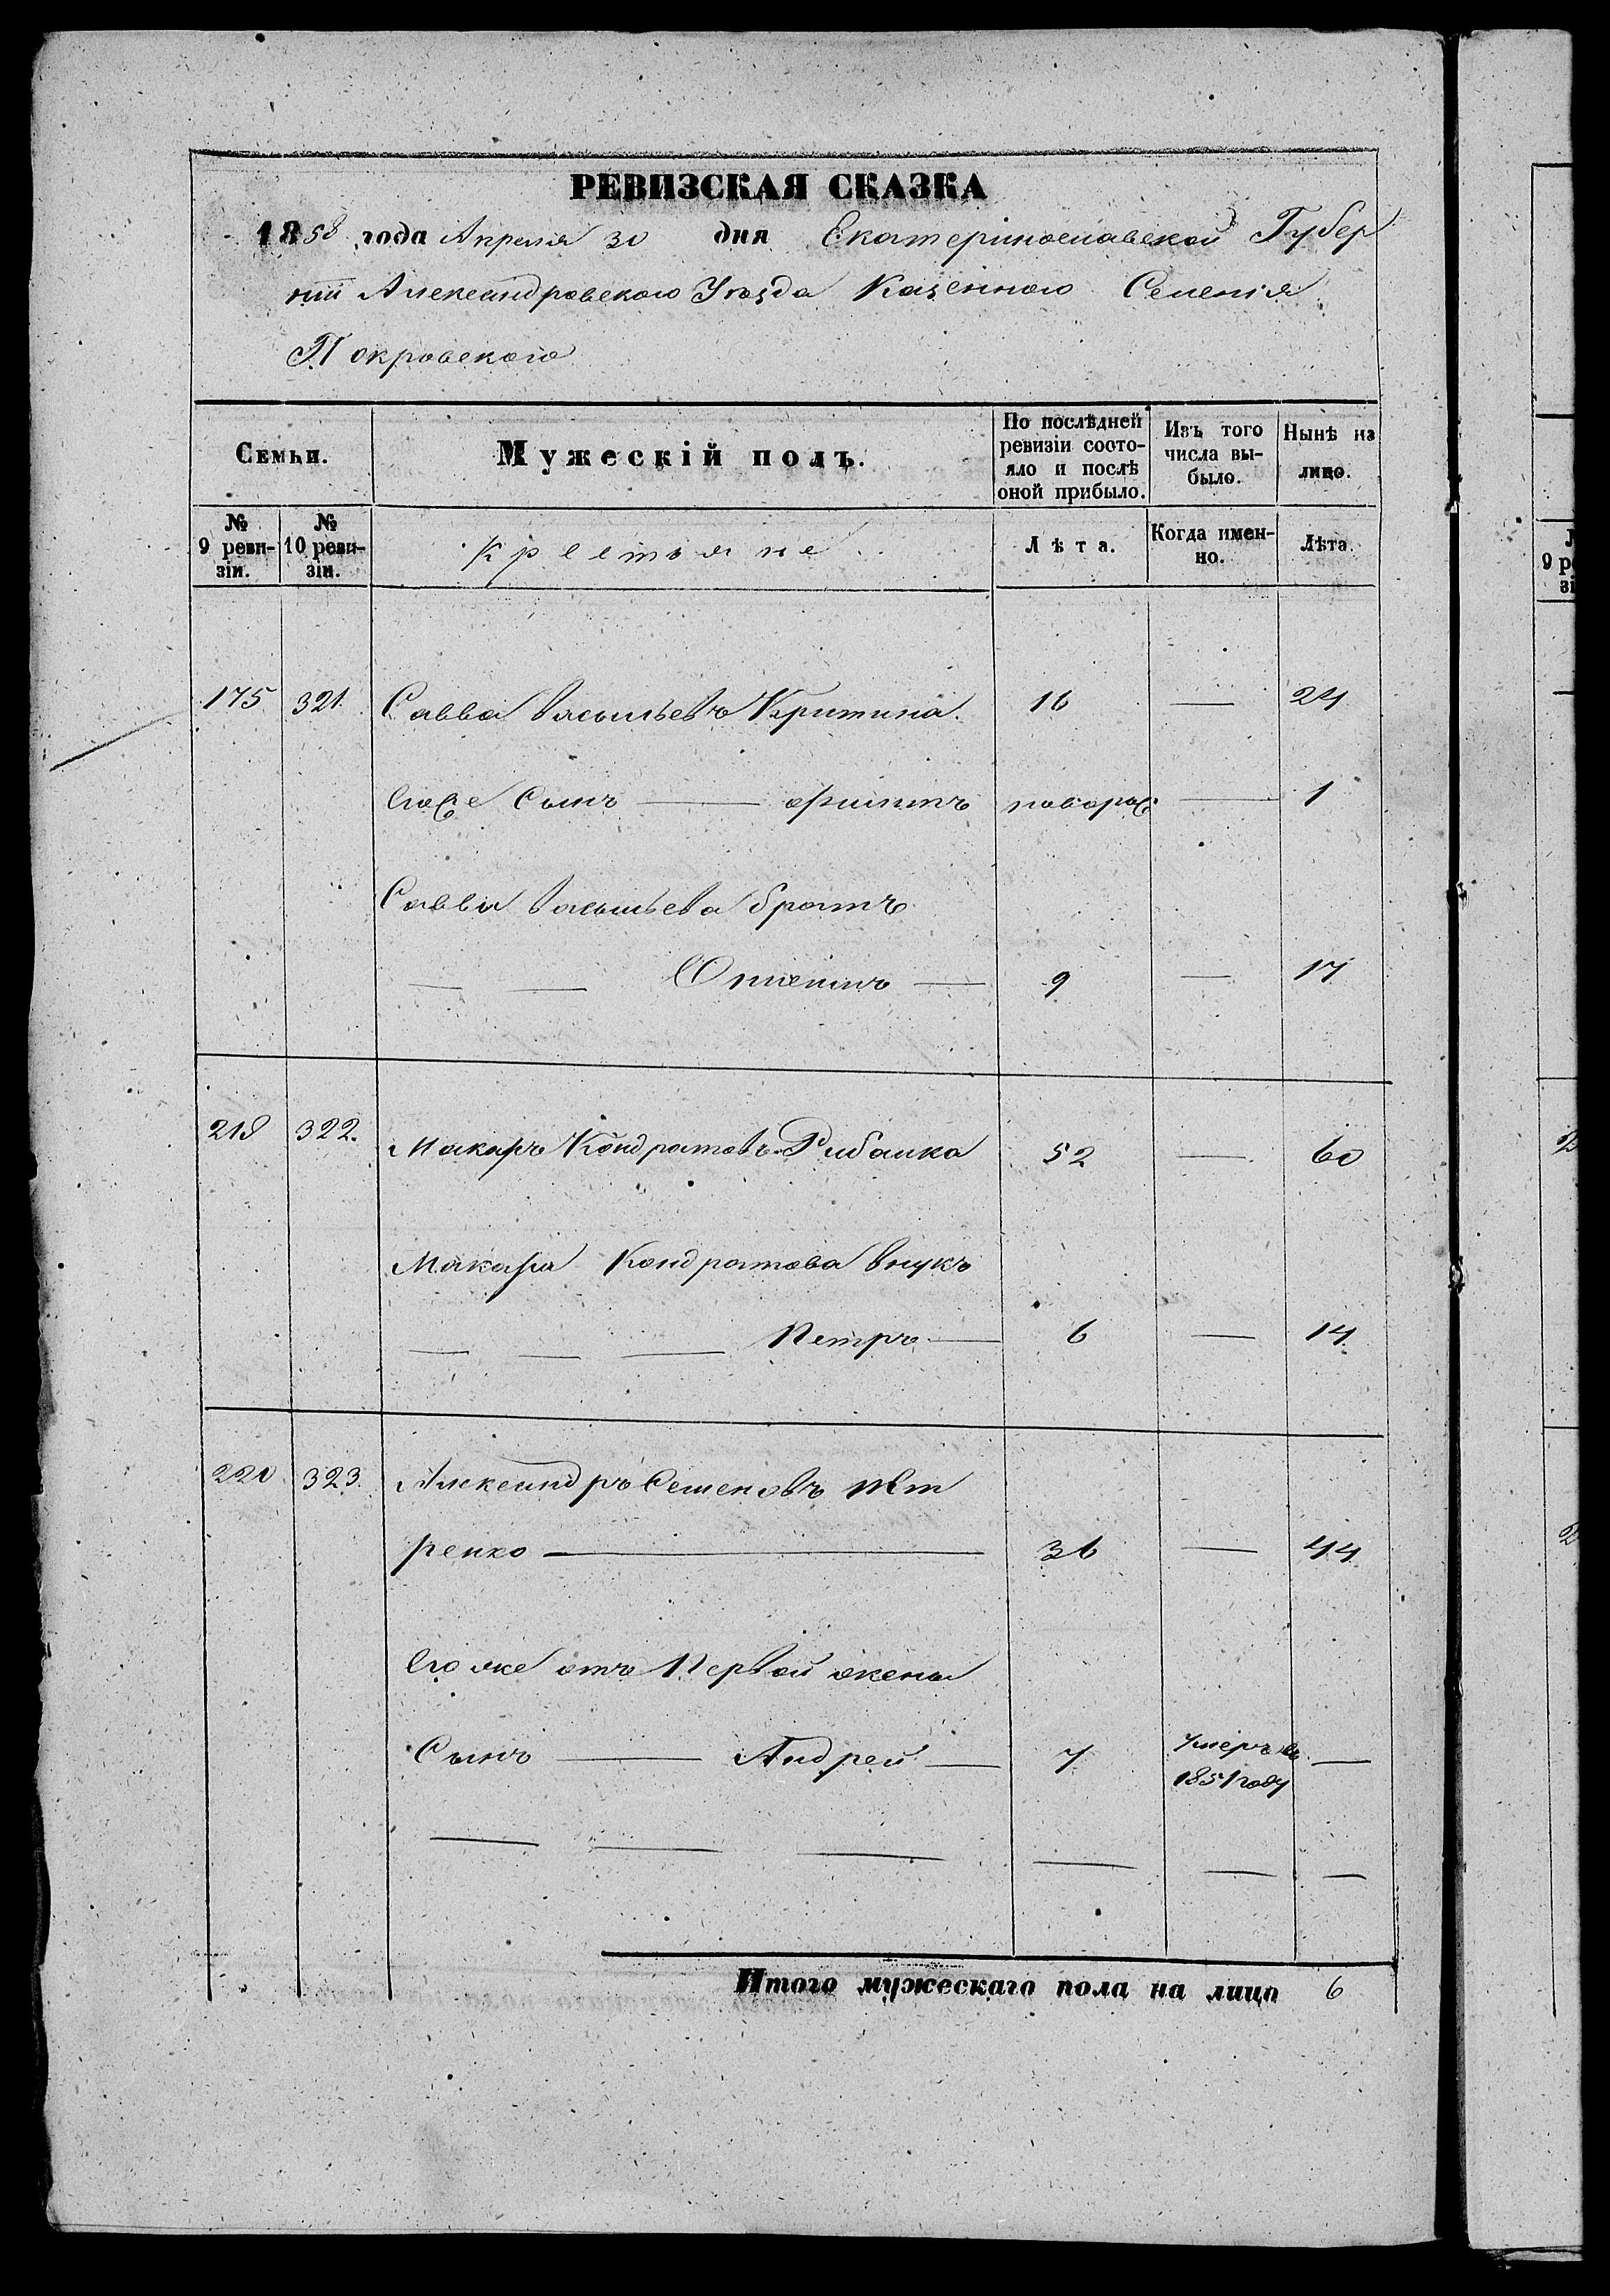 РЕВИЗСКАЯ СКАЗКА
1858 года Апреля 30 дня Екатеринославской Губер
нии Александровского Уѣзда Казенного Селенія
Покровского
Семьи. Мужескій полъ. По послѣдней ревизіи состояло и послѣ оной прибыло. Изъ того числа выбыло. Нынѣ на лицо.
№ 9 ревизіи. № 10 ревизіи. Крестьяне Лѣта. Когда именно. Лѣта.
175 321. Савва Васильевъ Критина. 16 — 24
Его же Сынъ — Филипъ новорож — 1
Саввы Васильева братъ
— — — 9 — 17
218 322. Макаръ Кондратовъ Рибалка 52 — 60
Макара Кондратова внукъ
— — — Петръ — 6 — 14
220 323. Александръ Семеновъ
ренко — 36 — 44
Его же отъ Первой жены
Сынъ — Андрей — 7 Умеръ въ 1851 году —
— — — — — —
Итого мужескаго пола на лицо 6
9 ре
зі